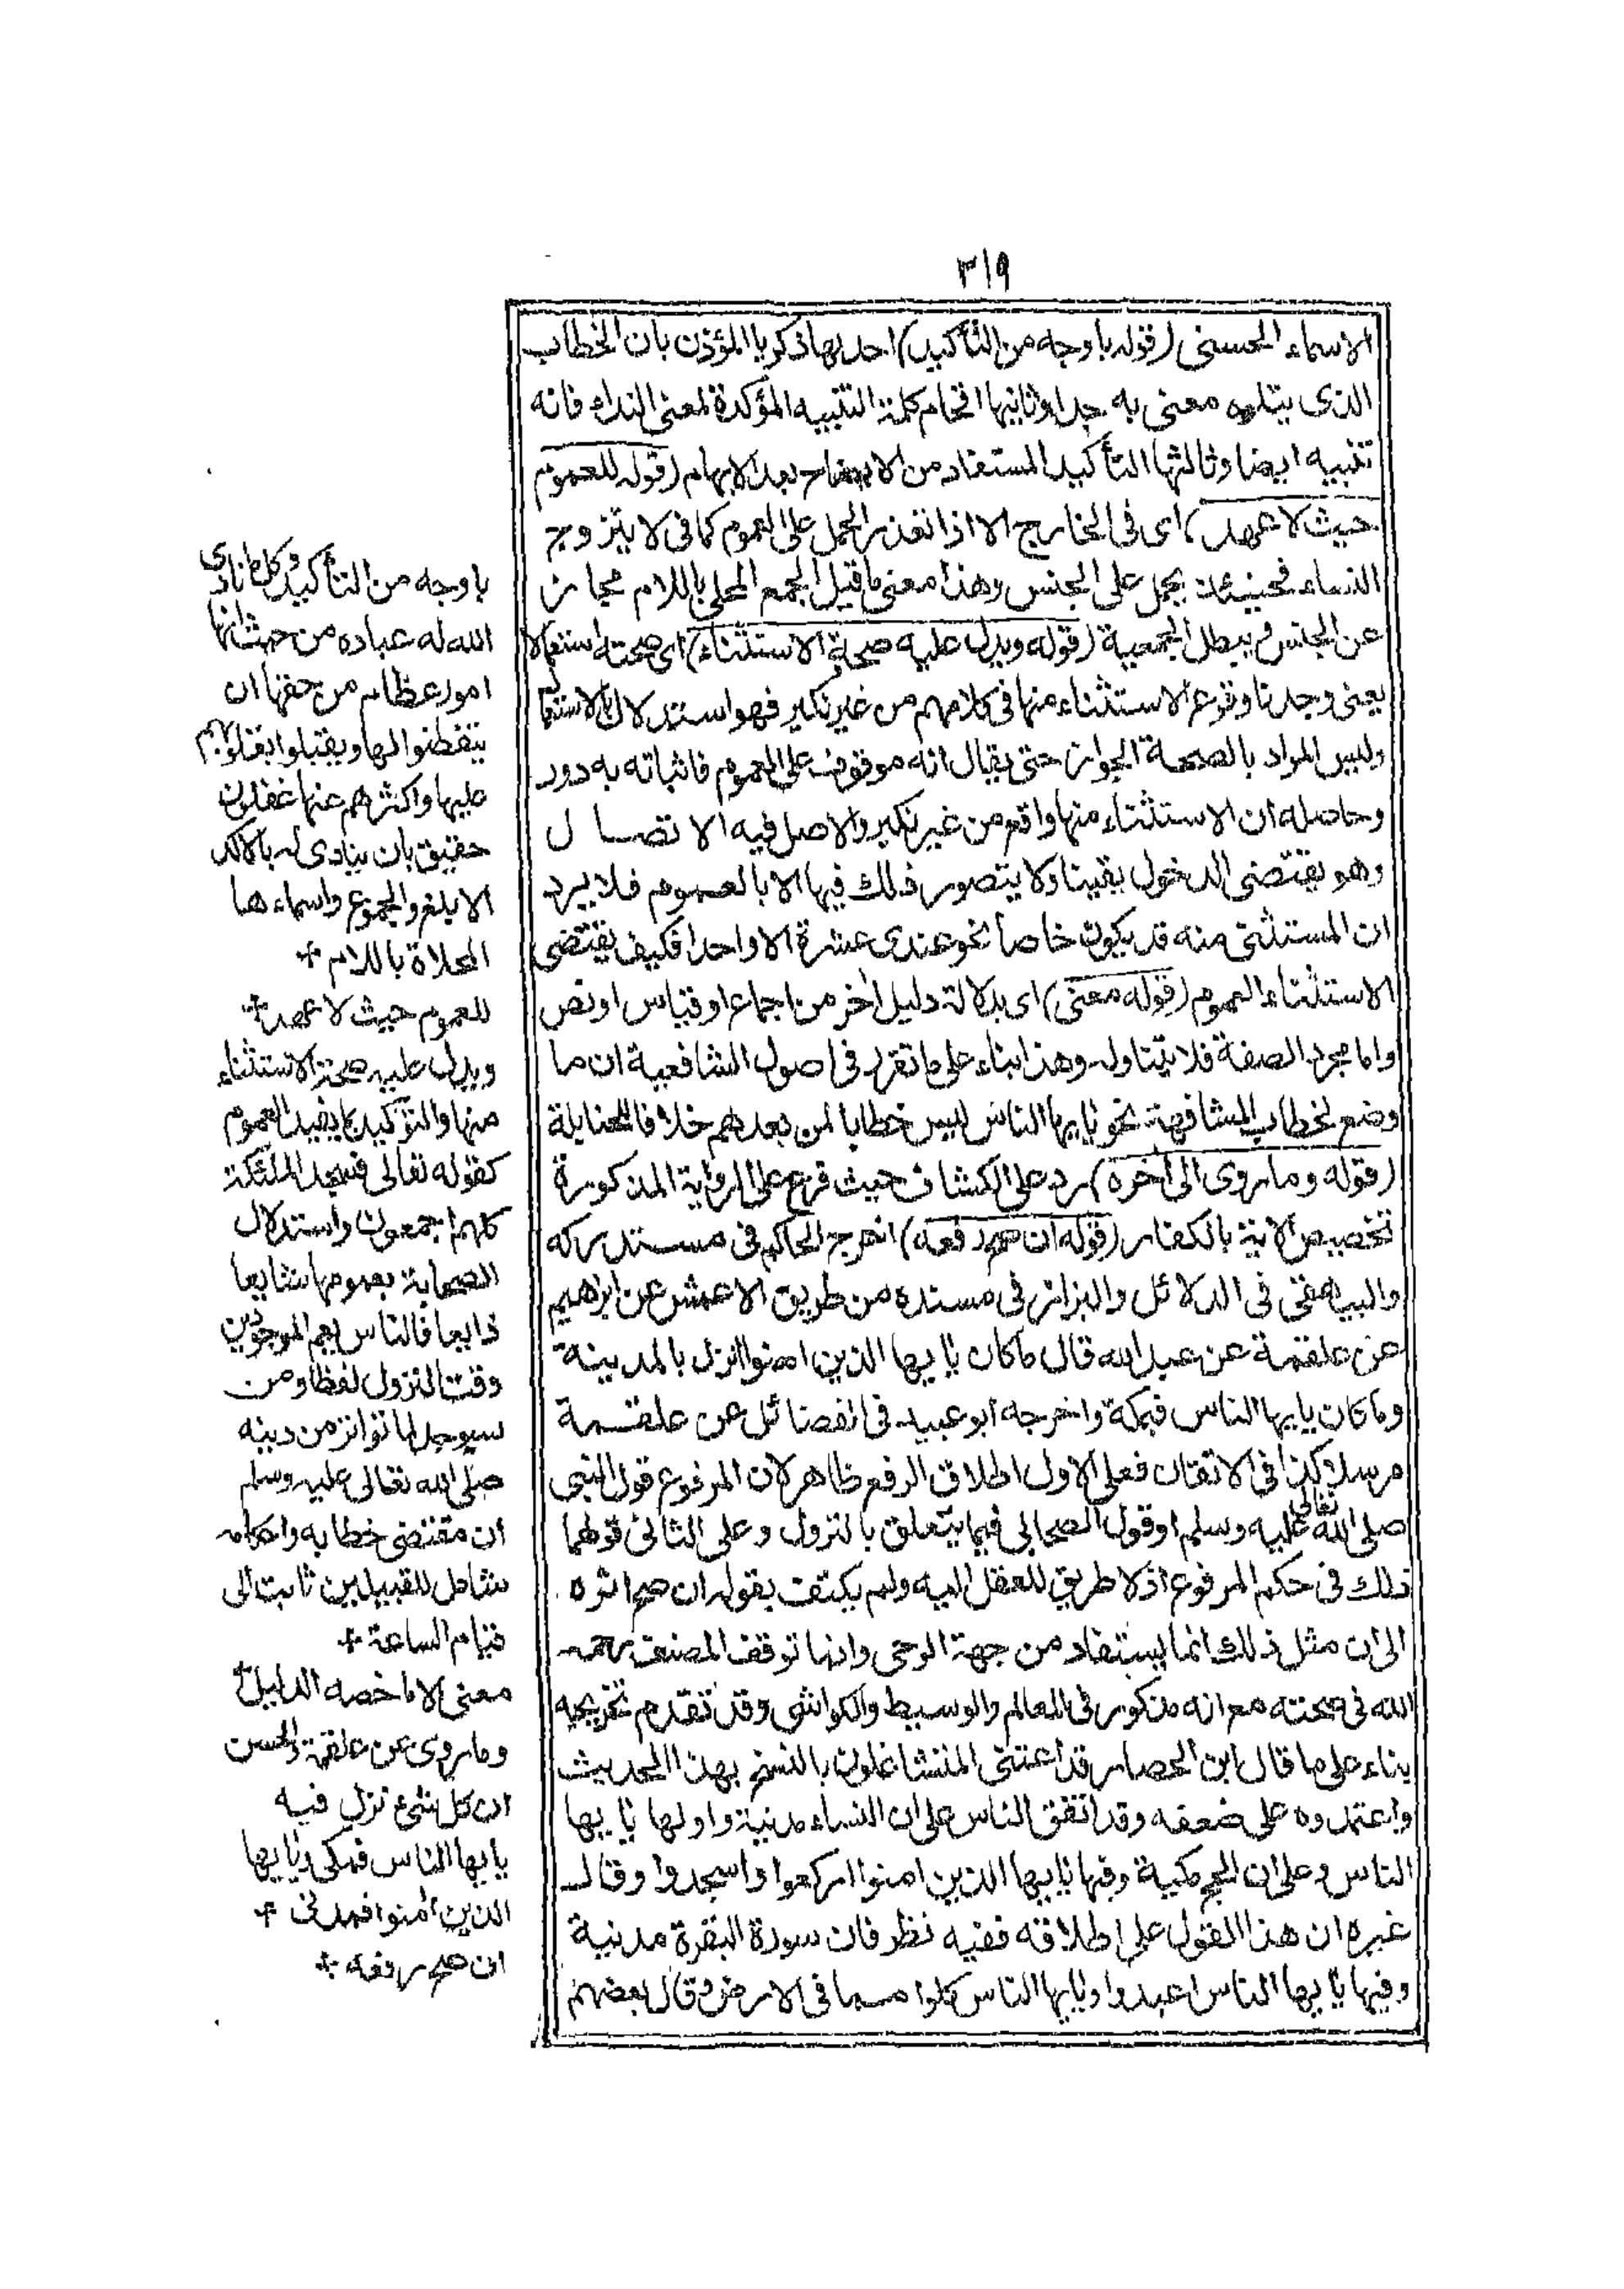 ٣١٩
الاسماء الحسنى (قوله باوجه من التأكيد) احدها ذكر يا المؤذن بان الخطاب
الذى يتلوه معنى به جدا وثانيها اقحام كلمة التنبيه المؤكدة لمعنى النداء فانه
تنبيه ايضا وثالثها التأكيد المستفاد من الايضاح بعد الابهام (قوله للعموم
حيث لا عهد) اى فى الخارج الا اذا تعذر الحمل على العموم كما فى لا يتزوج
النساء فحينئذ يحمل على الجنس وهذا معنى ما قيل الجمع المحلى باللام مجاز
عن الجنس فيبطل الجمعية (قوله ويدل عليه صحة الاستثناء) اى صحته استعمالا
يعنى وجدنا وقوع الاستثناء منها فى كلامهم من غير نكير فهو استدلال
وليس المراد بالصحة الجواز حتى يقال انه موقوف على العموم فاثباته به دور
وحاصله ان الاستثناء منها واقع من غير نكير والاصل فيه الاتصال
وهو يقتضى الدخول يقينا ولا يتصور ذلك فيها الا بالعموم فلا يرد
ان المستثنى منه قد يكون خاصا نحو عندى عشرة الا واحدا فكيف يقتضى
الاستثناء العموم (قوله معنى) اى بدلالة دليل اخر من اجماع او قياس او نص
واما مجرد الصفة فلا يتناوله وهذا بناء على ما تقرر فى اصول الشافعية ان ما
وضع لخطاب المشافهة نحو يايها الناس ليس خطابا لمن بعدهم خلافا للحنابلة
(قوله وما روى الى اخره) رد على الكشاف حيث فرع على الرواية المذكورة
تخصيص الاية بالكفار (قوله ان صح رفعه) اخرج الحاكم فى مستدركه
والبيهقى فى الدلائل والبزار فى مسنده من طريق الاعمش عن ابرهيم
عن علقمة عن عبد الله قال ما كان يايها الذين امنوا انزل بالمدينة
وما كان يايها الناس فبمكة واخرجه ابو عبيد فى الفضائل عن علقمة
مرسلا كذا فى الاتقان فعلى الاول اطلاق الرفع ظاهر لان المرفوع قول النبى
صلى الله تعالى عليه وسلم او قول الصحابى فيما يتعلق بالنزول وعلى الثانى قولهما
ذلك فى حكم المرفوع اذ لا طريق للعقل اليه ولم يكتف بقوله ان صح اشارة
الى ان مثل ذلك انما يستفاد من جهة الوحى وانما توقف المصنف رحمه
الله فى صحته مع انه مذكور فى المعالم والوسيط والكواشى وقد تقدم تخريجه
بناء على ما قال ابن الحصار قد اعتنى المتشاغلون بالنسخ بهذا الحديث
واعتمدوه على ضعفه وقد اتفق الناس على ان النساء مدنية واولها يايها
الناس وعلى ان الحج مكية وفيها يايها الذين امنوا اركعوا واسجدوا وقال
غيره ان هذا القول على اطلاقه ففيه نظر فان سورة البقرة مدنية
وفيها يايها الناس اعبدوا ويايها الناس كلوا مما فى الارض وقال بعضهم
باوجه من التأكيد وكل ما نادى
الله له عباده من حيث انها
امور عظام من حقها ان
يتفطنوا لها ويقبلوا بقلوبهم
عليها واكثرهم عنها غفلون
حقيق بان ينادى له بالاكد
الابلغ والجموع واسماءها
المحلاة باللام +
للعموم حيث لا عهد +
ويدل عليه صحة الاستثناء
منها والتوكيد بما يفيد العموم
كقوله تعالى فسجد الملئكة
كلهم اجمعون واستدلال
الصحابة بعمومها شايعا
ذايعا فالناس يعم الموجودين
وقت النزول لفظا ومن
سيوجد لما تواتر من دينه
صلى الله تعالى عليه وسلم
ان مقتضى خطابه واحكامه
شامل للقبيلين ثابت الى
قيام الساعة +
معنى الا ما خصه الدليل +
وما روى عن علقمة والحسن
ان كل شىء نزل فيه
يايها الناس فمكى ويايها
الذين امنوا فمدنى +
ان صح رفعه +